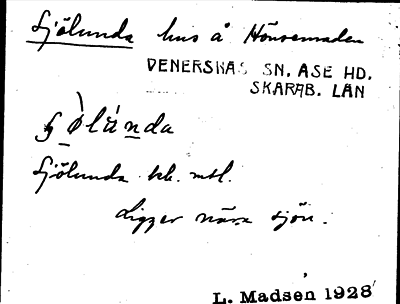 Sjölunda hus å Hönsemaden
VENERSNÄS SN. ÅSE HD.
SKARAB. LÄN
ʂø̀lún̠da
Sjölunda kb. mtl.
Ligger nära sjön.
L. Madsen 1928